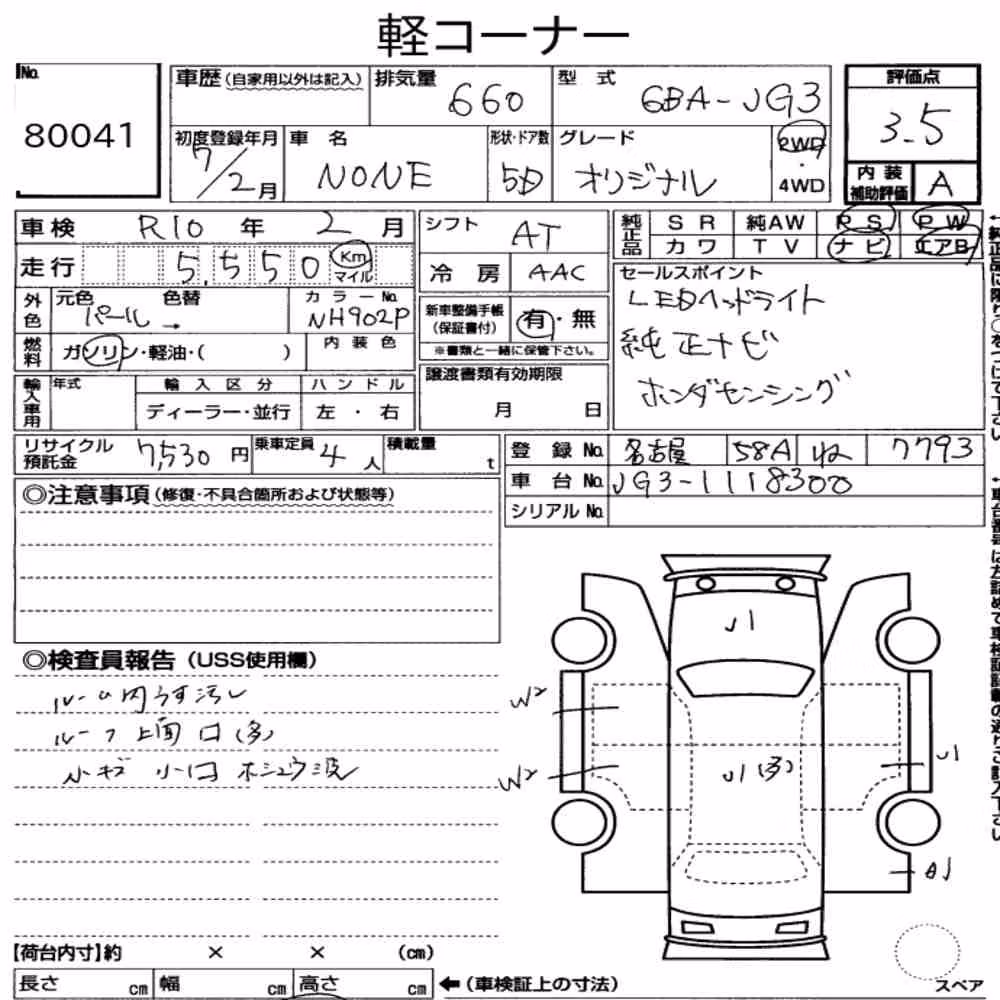 軽コーナー
No. 80041
車歴 (自家用以外は記入)
排気量 660
型式 6BA-JG3
評価点 3.5
初度登録年月 7/2月
車名 NONE
形状・ドア数 5D
グレード オリジナル
2WD・4WD
内装補助評価 A
車検 R10年 2月
シフト AT
純正品 SR 純AW PS PW
カワ TV ナビ エアB
走行 5,550 Km マイル
冷房 AAC
セールスポイント
LEDヘッドライト
純正ナビ
ホンダセンシング
外色 元色 パール → 色替
カラーNo. NH902P
新車整備手帳(保証書付) 有・無
※書類と一緒に保管下さい。
燃料 ガソリン・軽油・( )
内装色
譲渡書類有効期限
月 日
輸入車用 年式 輸入区分 ハンドル
ディーラー・並行 左・右
リサイクル預託金 7,530円
乗車定員 4人
積載量 t
登録No. 名古屋 58A ね 7793
車台No. JG3-1118300
シリアルNo.
◎注意事項 (修復・不具合箇所および状態等)
◎検査員報告 (USS使用欄)
ルーム内うす汚レ
ルーフ上面凹(多)
小キズ 小凹 ホシュウ
U1
W2
W2
U1(多)
U1
A1
【荷台内寸】約 × × (cm)
長さ cm 幅 cm 高さ cm
←(車検証上の寸法)
スペア
←純正品に限り○をつけて下さい
←車台番号は左詰めで車検証記載の通りご記入下さい